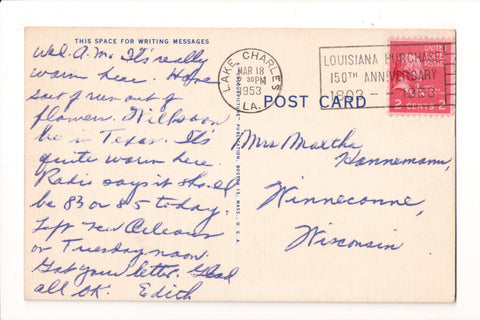 THIS SPACE FOR WRITING MESSAGES
Wed. A.M. It's really
warm here. Have
sort of run out of
flowers. Will soon
be in Texas. It's
quite warm here.
Radio says it should
be 83 or 85 today.
Left New Orleans
on Tuesday noon.
Got your letter. Glad
all OK. Edith
LAKE CHARLES
MAR 18
30 PM
1953
LA.
LOUISIANA PURCHASE
150TH ANNIVERSARY
1803 - 1953
POST CARD
Mrs Martha
Hannemann,
Winneconne,
Wisconsin